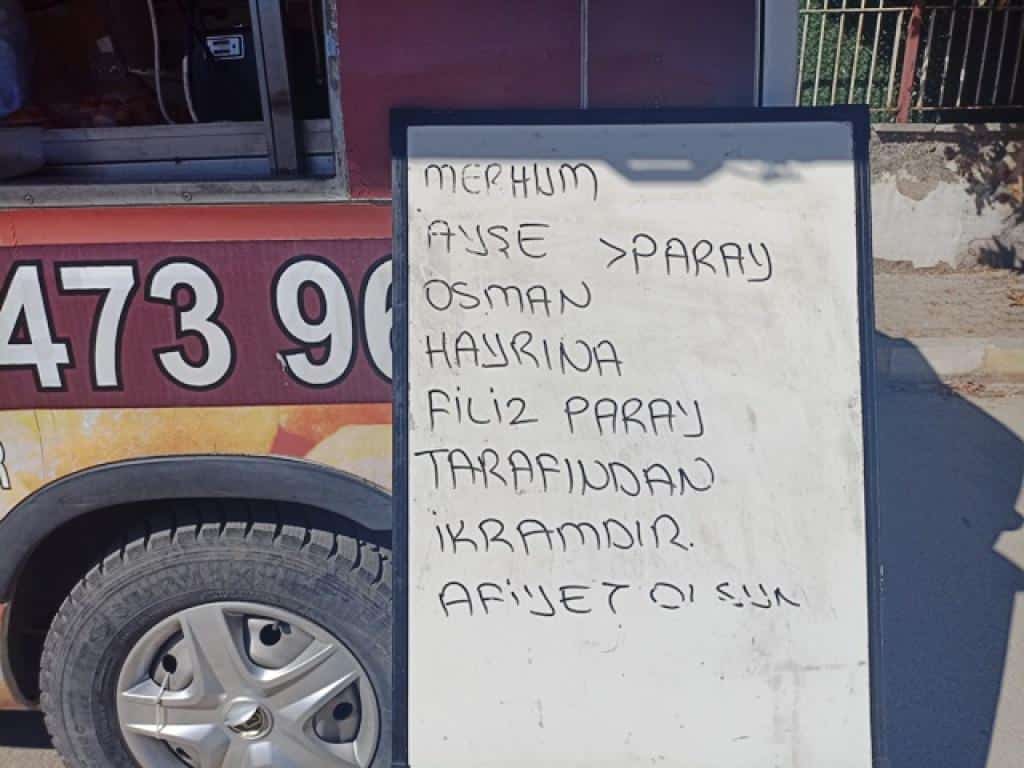 MERHUM
AYŞE >PARAY
OSMAN
HAYRINA
FİLİZ PARAY
TARAFINDAN
İKRAMDIR.
AFİYET OLSUN
473 96
R